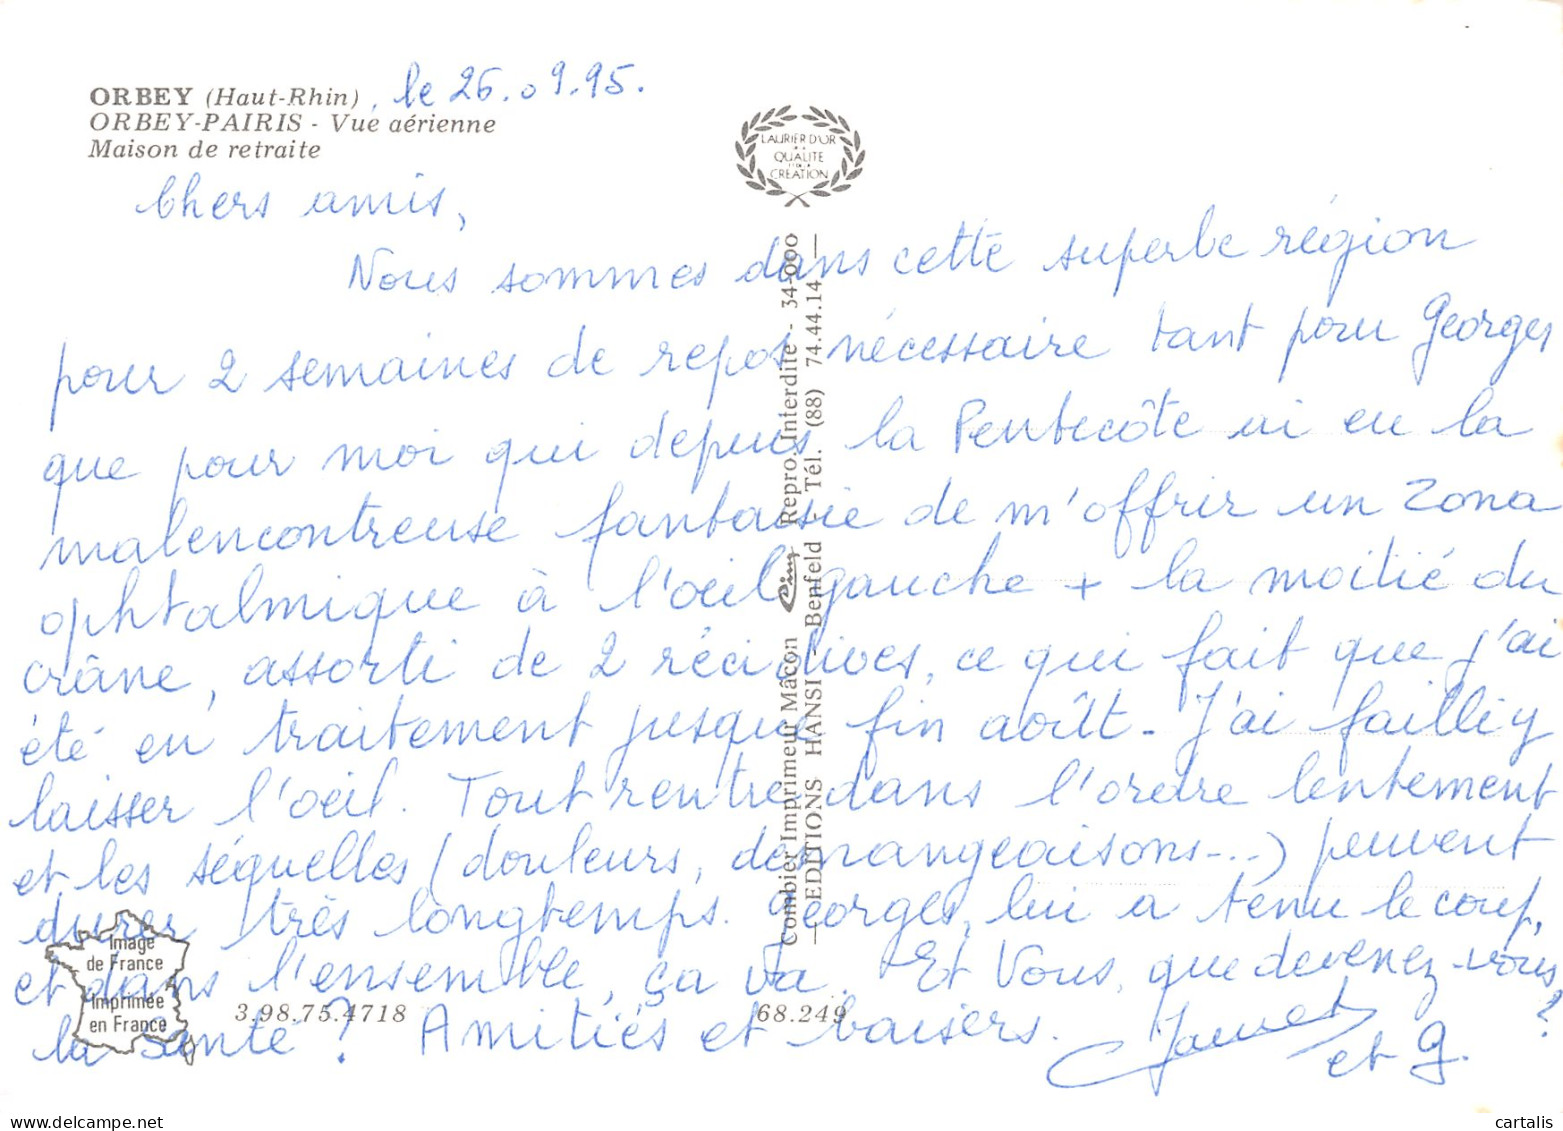 ORBEY (Haut-Rhin), le 26.09.95.
ORBEY-PAIRIS - Vue aérienne
Maison de retraite
LAURIER D'OR
QUALITÉ
CRÉATION
Chers amis,
Nous sommes dans cette superbe région
pour 2 semaines de repos nécessaire tant pour Georges
que pour moi qui depuis la Pentecôte ai eu la
malencontreuse fantaisie de m'offrir un zona
ophtalmique à l'oeil gauche + la moitié du
crâne, assorti de 2 récidives, ce qui fait que j'ai
été en traitement jusque fin août. J'ai failli y
laisser l'oeil. Tout rentre dans l'ordre lentement
et les séquelles (douleurs, démangeaisons...) peuvent
durer très longtemps. Georges, lui a tenu le coup,
et dans l'ensemble, ça va. Et Vous, que devenez-vous ?
la santé ? Amitiés et baisers.
et G.
Combier Imprimeur Mâcon Cim Repro. Interdite - 34-000
— EDITIONS HANSI - Benfeld - Tél. (88) 74.44.14 —
Image
de France
Imprimée
en France
3.98.75.4718
68.249
www.delcampe.net
cartalis